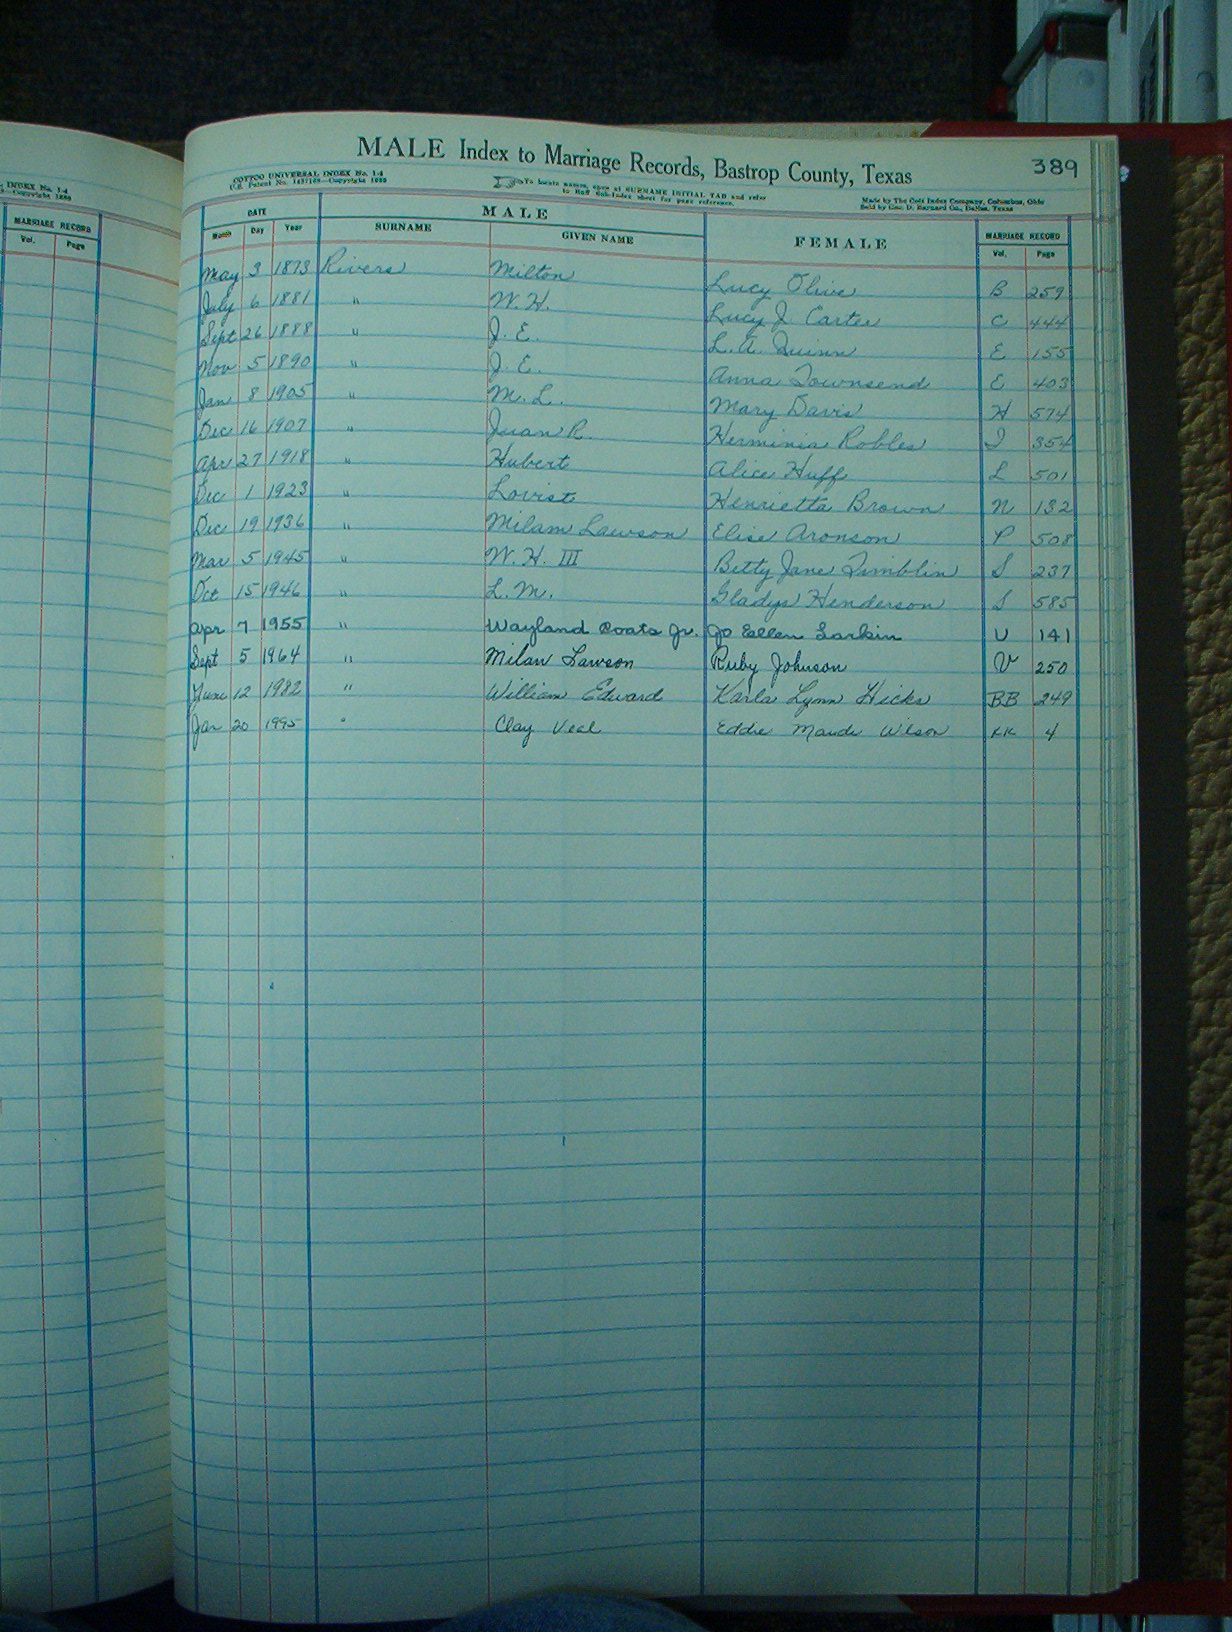 INDEX No. 1-4
MARRIAGE RECORD
Vol. Page
MALE Index to Marriage Records, Bastrop County, Texas 389
COTTCO UNIVERSAL INDEX No. 1-4
To locate names, open at SURNAME INITIAL TAB and refer
to Buff Sub-Index Sheet for page reference.
Made by The Cott Index Company, Columbus, Ohio
Sold by Geo. D. Barnard Co., Dallas, Texas
DATE MALE FEMALE MARRIAGE RECORD
Month Day Year SURNAME GIVEN NAME Vol. Page
May 3 1873 Rivers Milton Lucy Olive B 259
July 6 1881 " W. H. Lucy J Carter C 444
Sept 26 1888 " J. E. L. A. Quinn E 155
Nov 5 1890 " J. E. Anna Townsend E 403
Jan 8 1905 " M. L. Mary Davis H 574
Dec 16 1907 " Juan R. Herminia Robles I 354
Apr 27 1918 " Hubert Alice Huff L 501
Dec 1 1923 " Lovist Henrietta Brown N 132
Dec 19 1936 " Milam Lawson Elise Aronson P 508
Mar 5 1945 " W. H. III Betty Jane Timblin S 237
Oct 15 1946 " L. M. Gladys Henderson S 585
Apr 7 1955 " Wayland Coats Jr. Jo Ellen Larkin U 141
Sept 5 1964 " Milan Lawson Ruby Johnson V 250
June 12 1982 " William Edward Karla Lynn Hicks BB 249
Jan 20 1995 " Clay Veal Eddie Maude Wilson KK 4